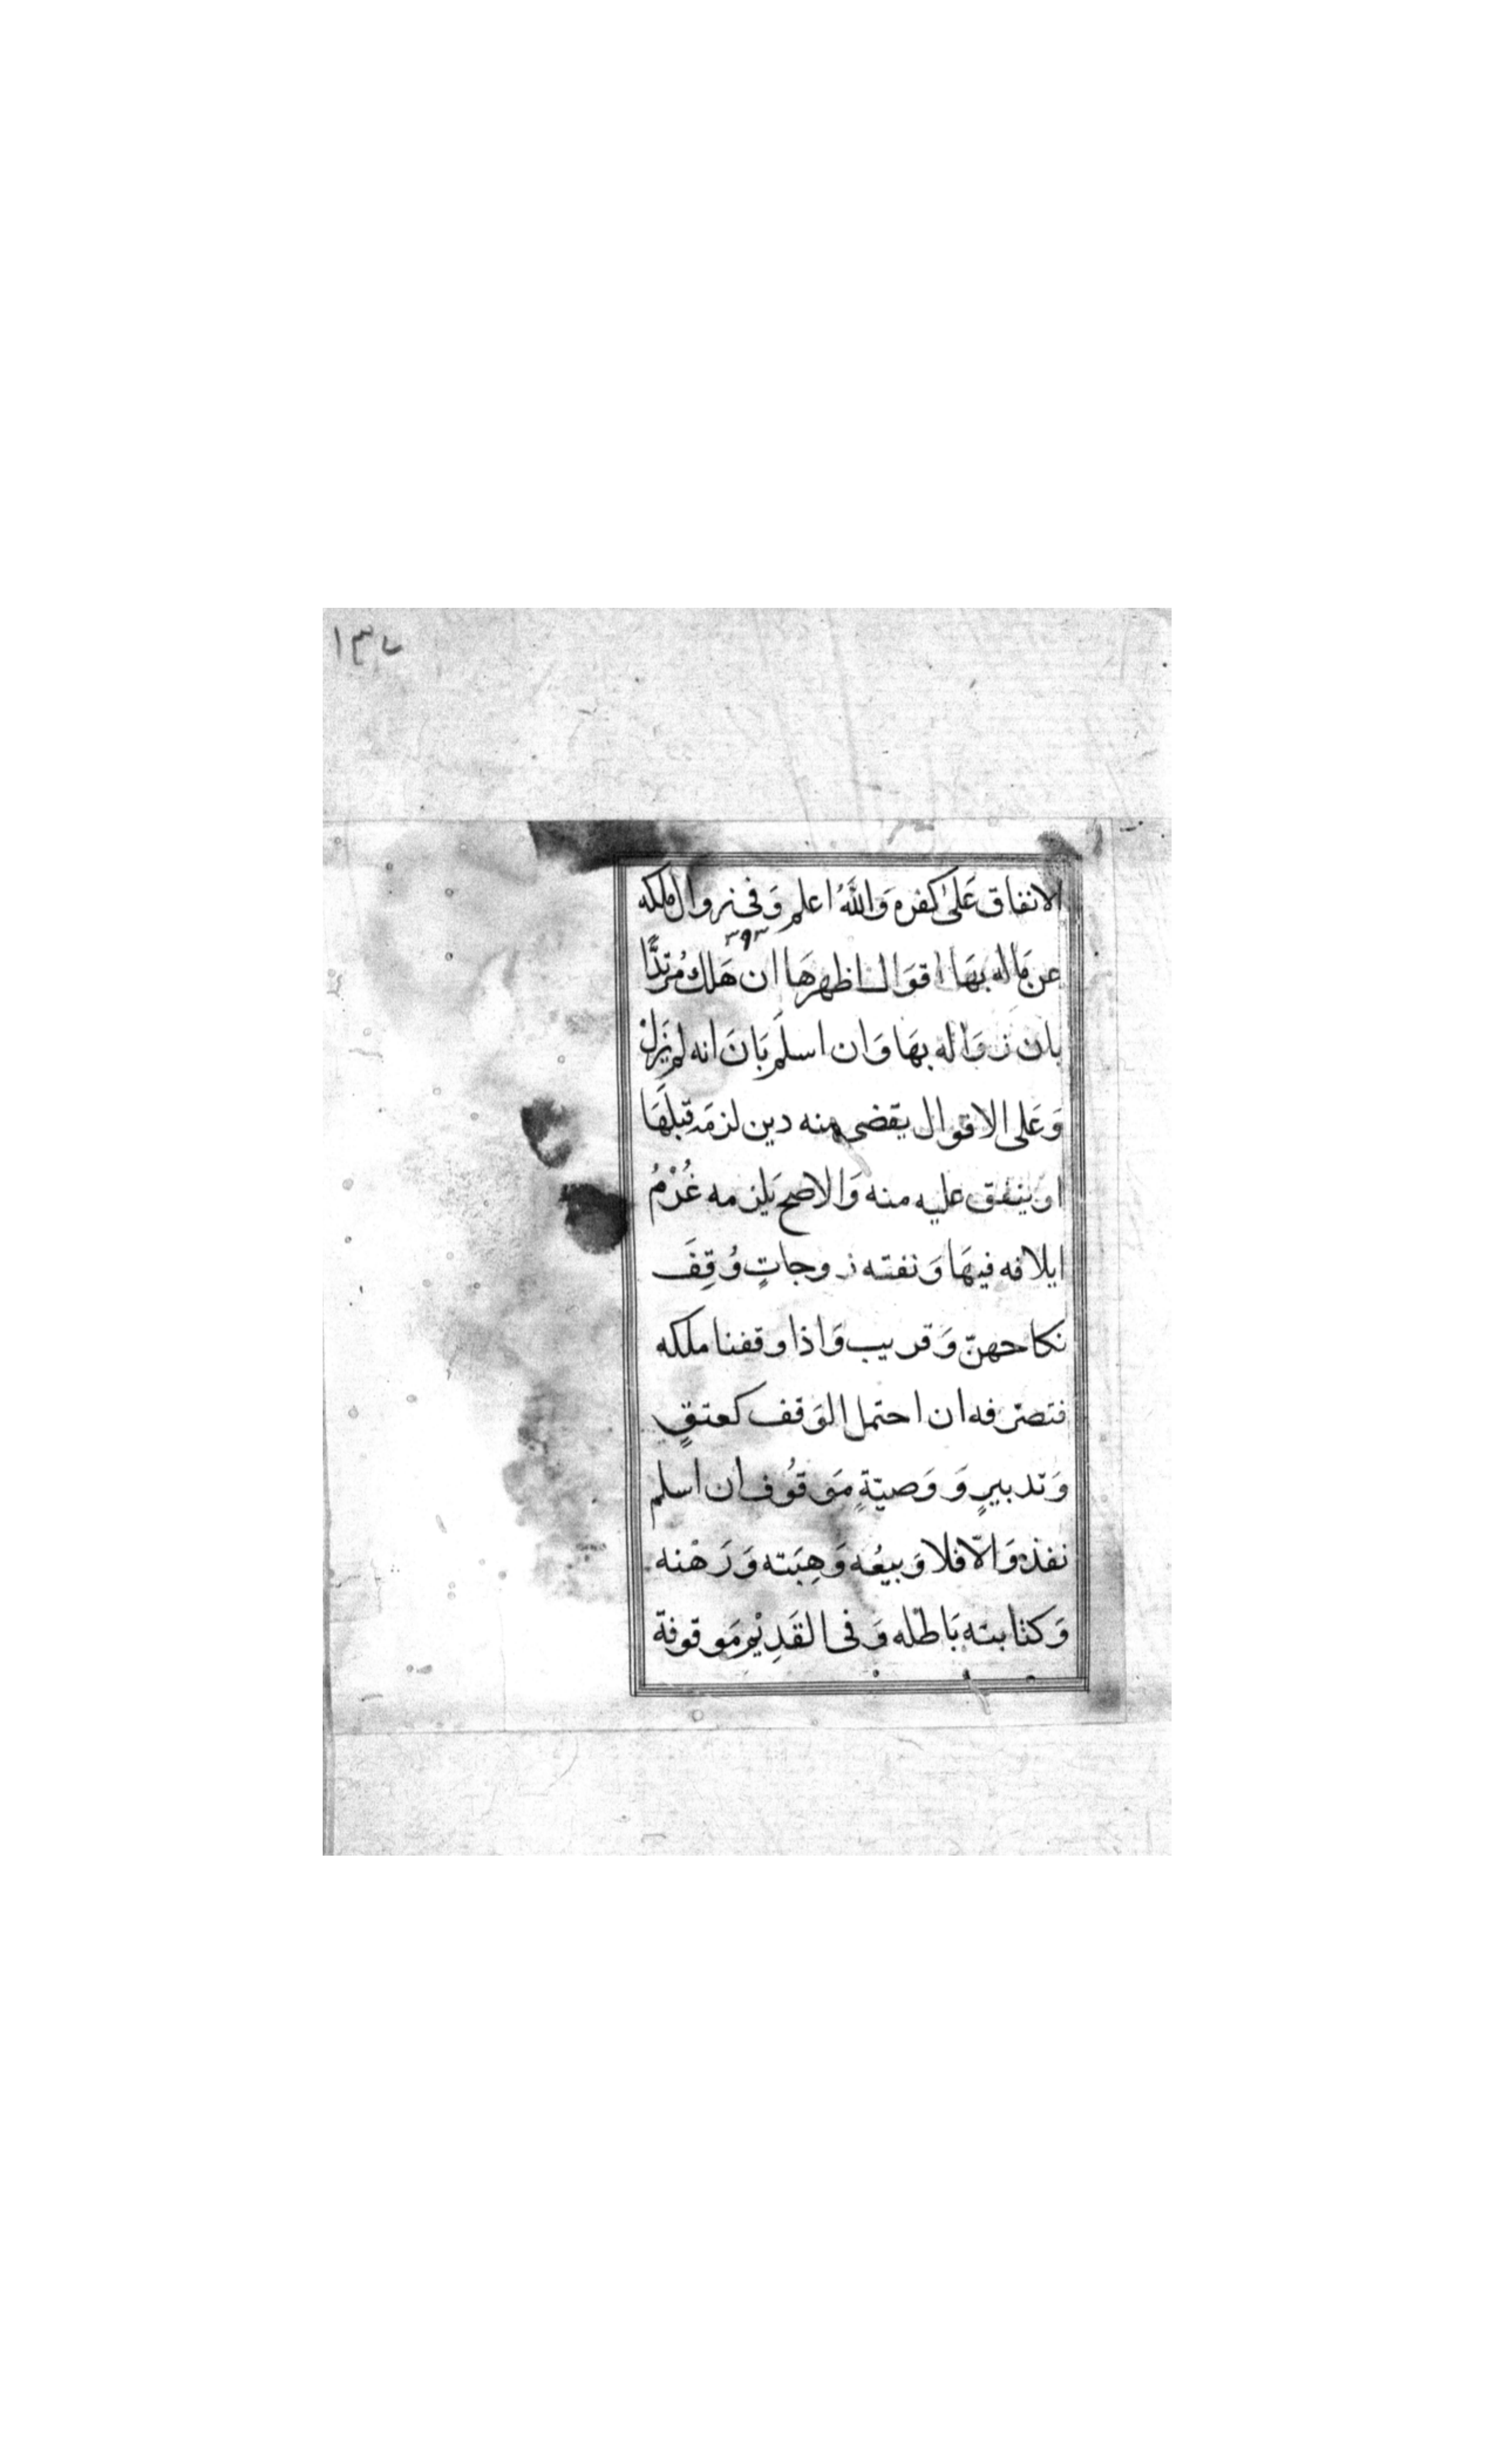 ١٣٧
الانفاق عَلىٰ كفره وَاللّٰهُ اعلم وَفى زوال ملكه
عن مَاله بهَا اقوَال اظهرهَا ان هَلك مُرتدًّا
بان زوَاله بهَا وَان اسلَم بَانَ انه لم يَزَلْ
وَعَلى الاقوال يقضى منه دين لزمَه قبلَهَا
او ينفق عليه منه وَالاصح يَلزمه غُرْمُ
ايلافه فيهَا وَنفته زوجاتٍ وُقِفَ
نكاحهنّ وَقريب وَاذا وقفنا ملكه
فتصرّفه ان احتمل الوَقف كعتقٍ
وَتدبيرٍ وَ وَصيّةٍ مَوقُوف ان اسلم
نفذ وَالاّ فلا وَبيعُه وَهِبَته وَرَهْنه
وَكتابته بَاطله وَفى القَدِيْم مَوقوفة